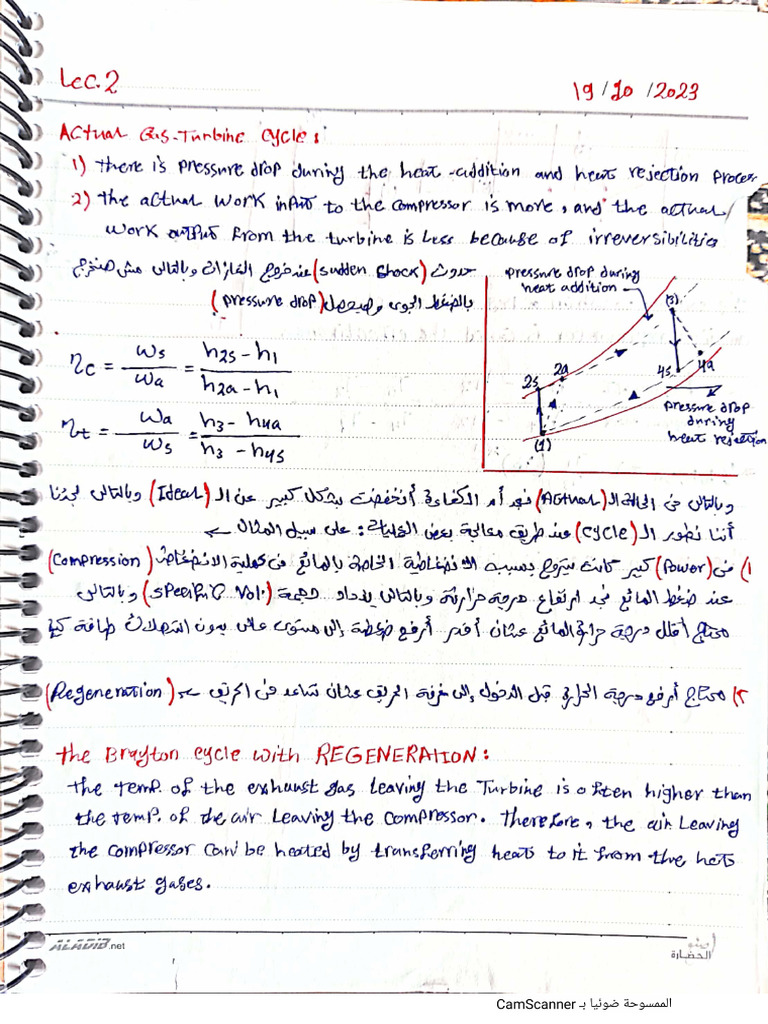 Lec.2
19/10/2023
Actual Gas-Turbine Cycle:
1) there is pressure drop during the heat-addition and heat rejection Process
2) the actual work input to the compressor is more, and the actual
work output from the turbine is Less because of irreversibilities
حدوث (sudden shock) عند خروج الغازات وبالتالى مش هتخرج
بالضغط الجوى وهيحصل (pressure drop)
pressure drop during
heat addition
(3)
2s
2a
4s
4a
(1)
pressure drop
during
heat rejection
ηc = ws/wa = h2s - h1/h2a - h1
ηt = wa/ws = h3 - h4a/h3 - h4s
وبالتالى فى الحالة الـ (Actual) نجد أن الكفاءة أنخفضت بشكل كبير عن الـ (Ideal) وبالتالى لجئنا
أننا نطور الـ (cycle) عن طريق معالجة بعض العمليات: على سبيل المثال
١) فى (Power) كبير كانت بتروح بسبب الانضغاطية الخاصة بالمائع فى عملية الانضغاط (Compression)
عند ضغط المائع نجد ارتفاع درجة حرارته وبالتالى يزداد حجمه (specific Vol.) وبالتالى
محتاج أقلل درجة حرارة المائع عشان أقدر أرفع ضغطه إلى مستوى عالى بدون استهلاك طاقة كبيرة
٢) محتاج أرفع درجة الحرارة قبل الدخول إلى غرفة الحريق عشان تساعد فى الحريق (Regeneration)
the Brayton cycle with REGENERATION:
the temp. of the exhaust gas leaving the Turbine is often higher than
the temp. of the air Leaving the compressor. therefore, the air Leaving
the compressor can be heated by transferring heat to it from the hot
exhaust gases.
ALADIB.net
الحضارة
الممسوحة ضوئيا بـ CamScanner